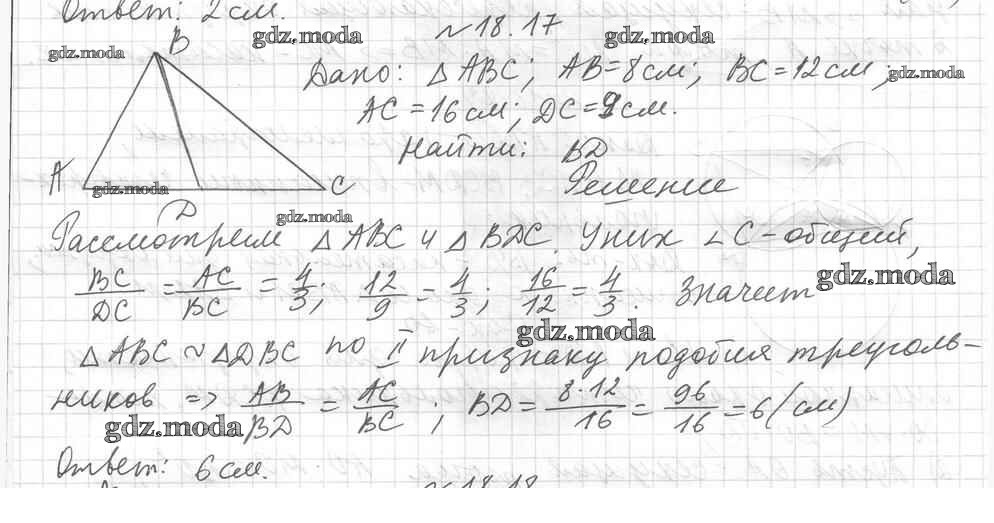 Ответ: 2 см.
№ 18.17
gdz.moda gdz.moda gdz.moda
B
Дано: △ ABC; AB=8см; BC=12см; gdz.moda
AC=16см; DC=9см.
Найти: BD
A gdz.moda C Решение
D gdz.moda
Рассмотрим △ ABC и △ BDC. У них ∠C - общий,
BC/DC = AC/BC = 4/3; 12/9 = 4/3; 16/12 = 4/3. Значит gdz.moda
gdz.moda
△ ABC ~ △DBC по II признаку подобия треуголь-
ников => AB/BD = AC/BC; BD = 8·12/16 = 96/16 = 6 (см)
gdz.moda
Ответ: 6 см.
№ 18.18